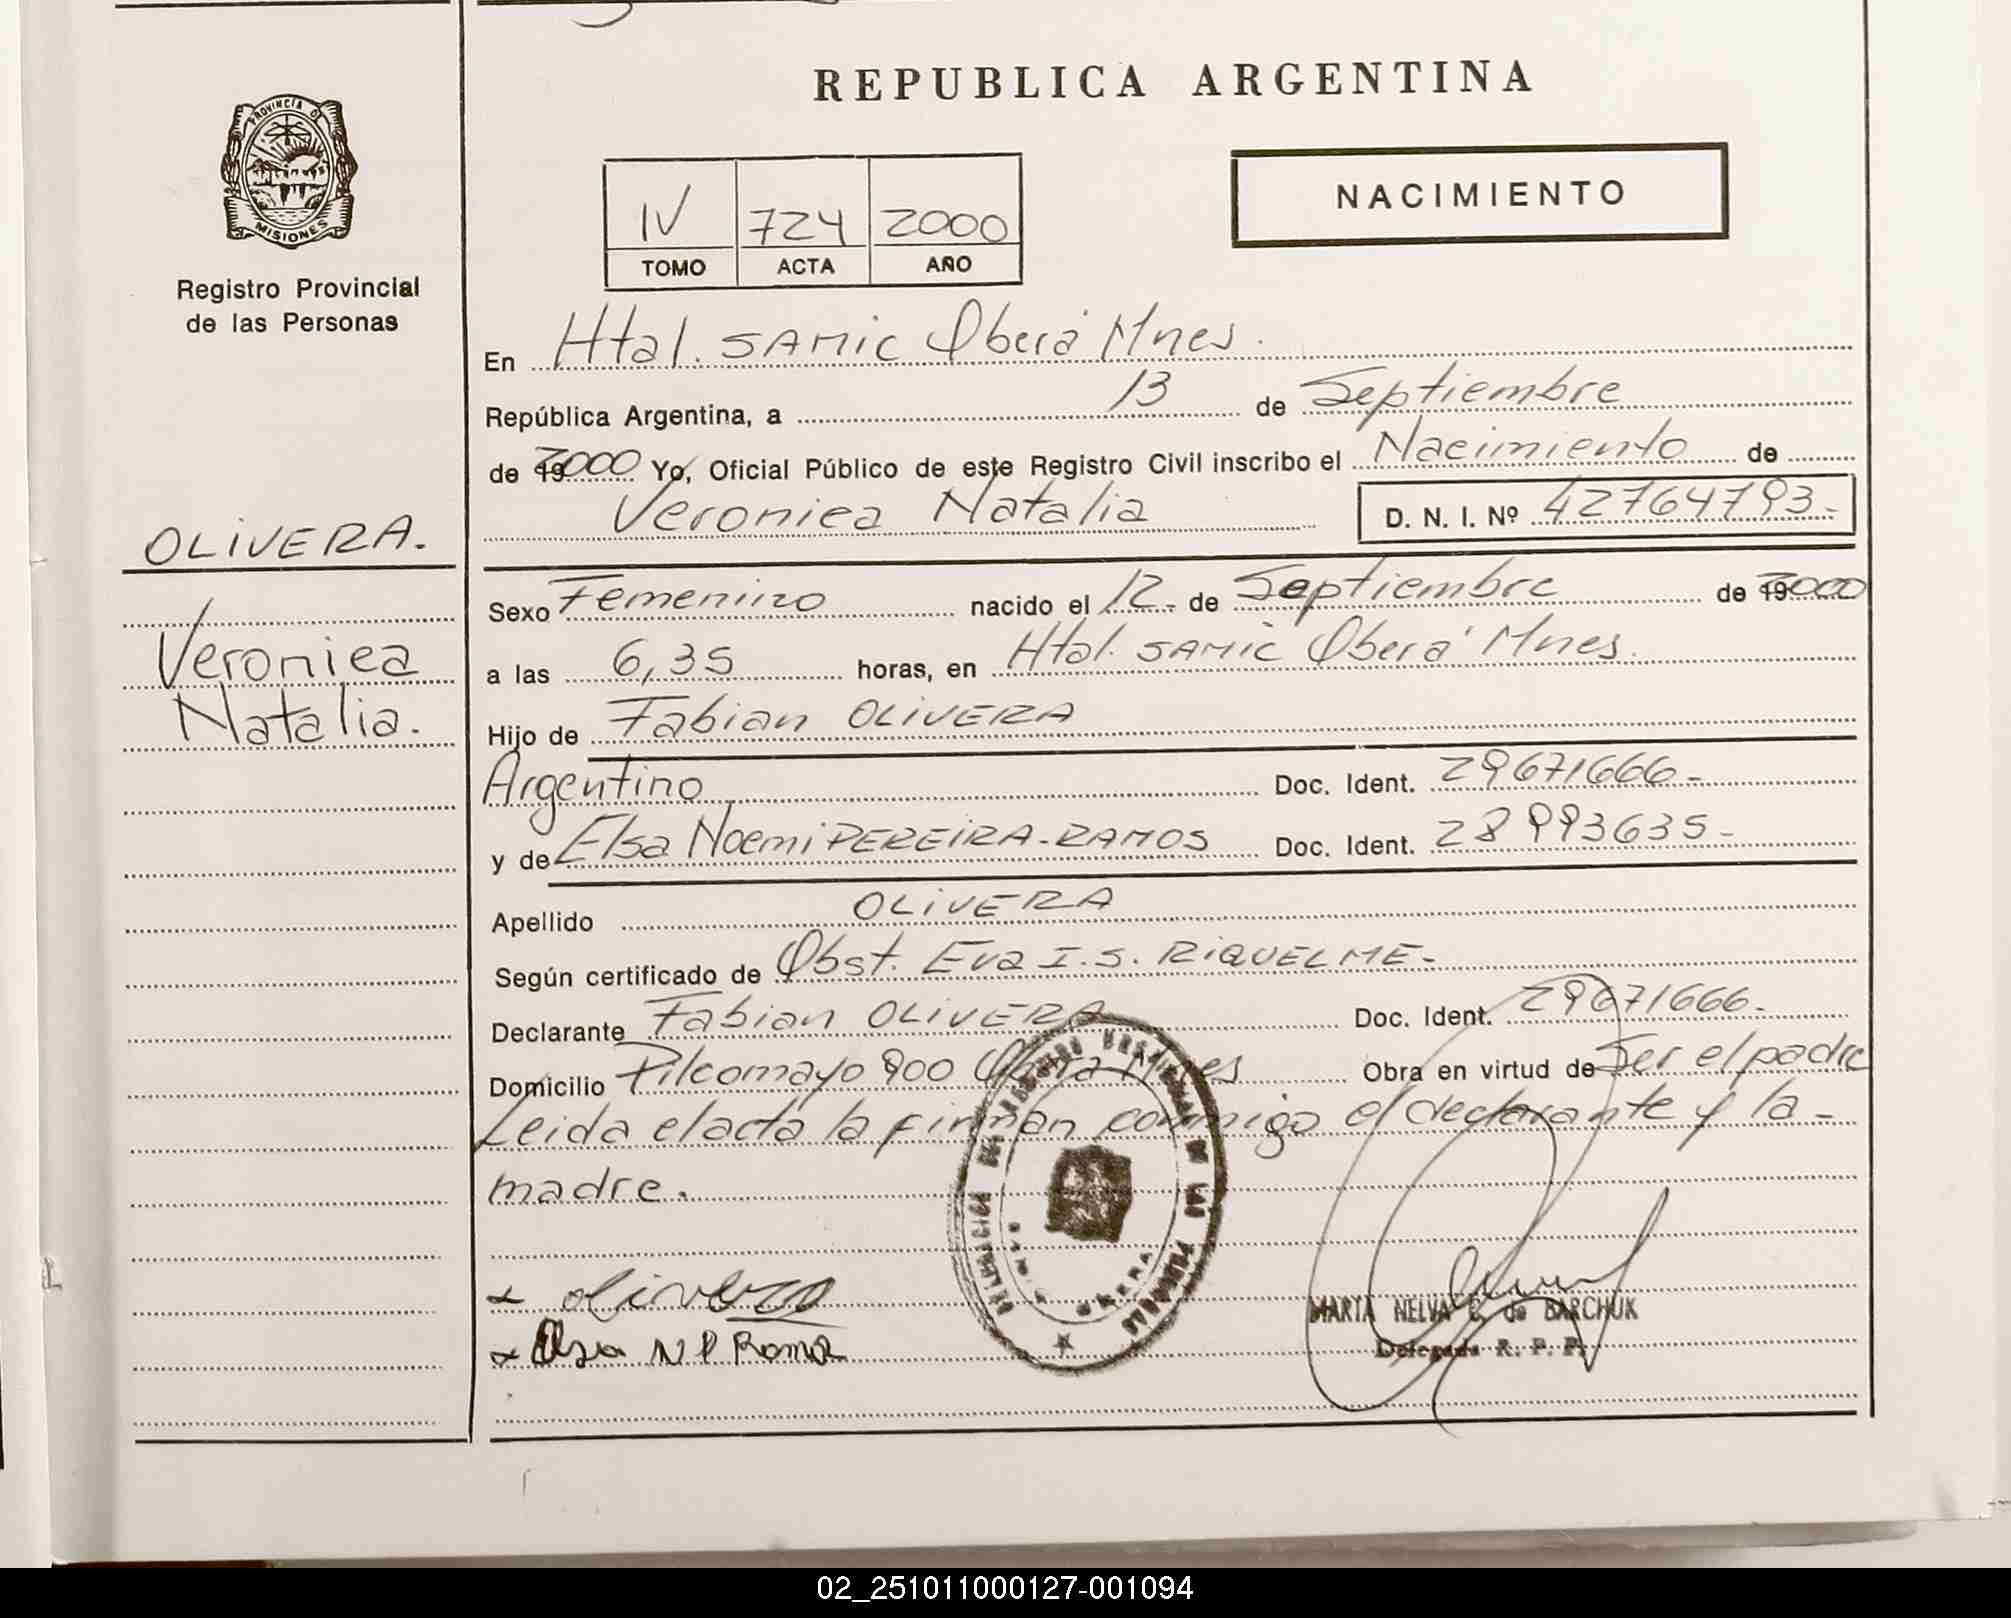 REPUBLICA ARGENTINA
PROVINCIA DE
MISIONES
Registro Provincial
de las Personas
NACIMIENTO
IV 724 2000
TOMO ACTA AÑO
En Htal. SAMIC Oberá Mnes.
República Argentina, a 13 de Septiembre
de 192000 Yo, Oficial Público de este Registro Civil inscribo el Nacimiento de
Veronica Natalia D. N. I. Nº 42764793.-
OLIVERA.
Veronica
Natalia.
Sexo Femenino nacido el 12.- de Septiembre de 192000
a las 6,35 horas, en Htal. SAMIC Oberá Mnes.
Hijo de Fabian OLIVERA
Argentino Doc. Ident. 29671666.-
y de Elsa Noemi PEREIRA-RAMOS Doc. Ident. 28993635.-
Apellido OLIVERA
Según certificado de Obst. Eva I. S. RIQUELME.-
Declarante Fabian OLIVERA Doc. Ident. 29671666.-
Domicilio Pilcomayo 900 Obera Mnes Obra en virtud de Ser el padre
Leida el acta la firman conmigo el declarante y la -
madre.
DELEGACION DEL REGISTRO PROVINCIAL DE LAS PERSONAS
MISIONES
OBERA
x olivera
x Elsa N P Ramos
MARTA NELVA de BARCHUK
Delegada R. P. P.
02_251011000127-001094